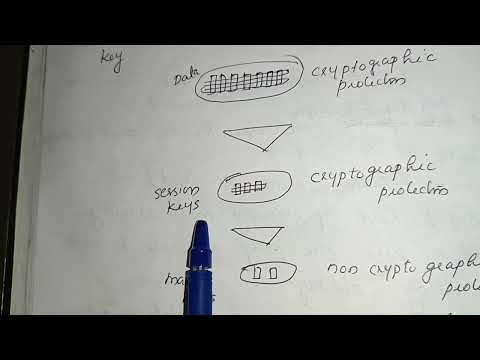 Key
Data
cryptographic
protection
session
keys
cryptographic
protection
non cryptographic